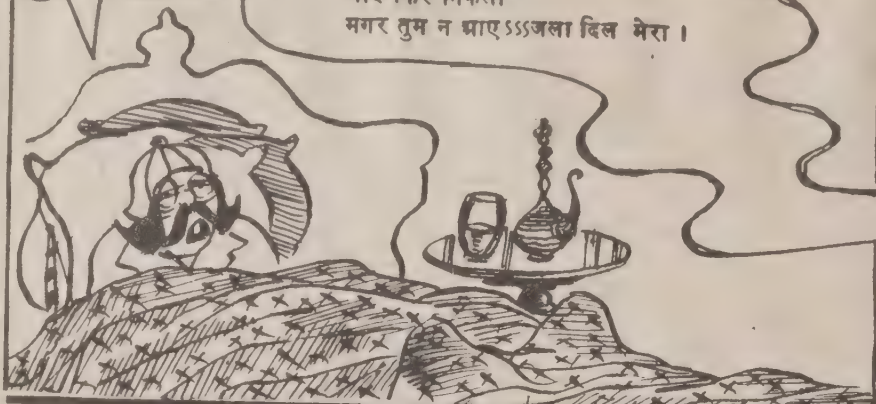 मगर तुम न आए SSSजला दिल मेरा ।